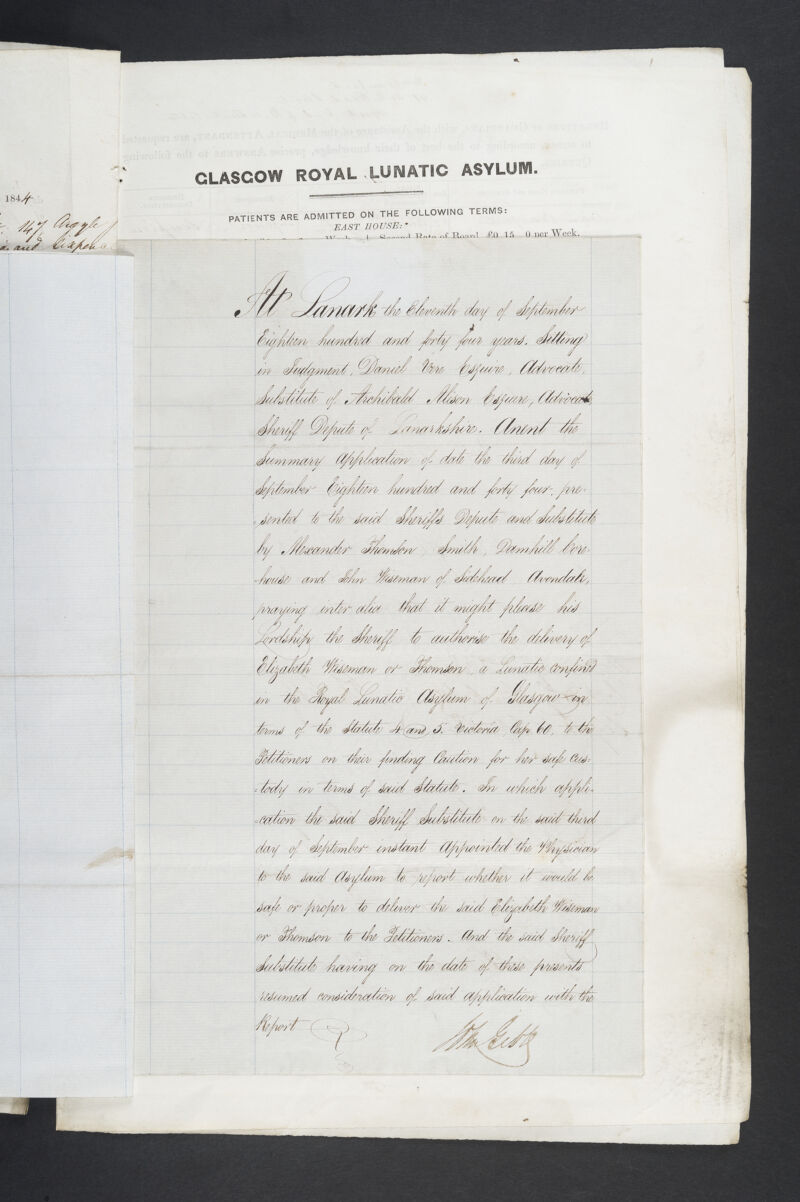 1844
147 Argyle
and
GLASGOW ROYAL LUNATIC ASYLUM.
PATIENTS ARE ADMITTED ON THE FOLLOWING TERMS:
EAST HOUSE:*
Week Second Rate of Board, £0 15 0 per Week.
At Lanark the Eleventh day of September
Eighteen hundred and forty four years. Sitting
in Judgment, Daniel Vere Esquire, Advocate,
Substitute of Archibald Alison Esquire, Advocate
Sheriff Depute of Lanarkshire. Anent the
Summary Application of date the third day of
September Eighteen hundred and forty four, pre-
-sented to the said Sheriffs Depute and Substitute
by Alexander Thomson, Smith, Damhill Core-
-house and John Wiseman of Sidehead Avondale,
praying inter alia that it might please his
Lordship the Sheriff to authorise the delivery of
Elizabeth Wiseman or Thomson, a Lunatic confined
in the Royal Lunatic Asylum of Glasgow in
terms of the Statute 4 and 5. Victoria Cap 60, to the
Petitioners on their finding Caution for her safe cus-
-tody in terms of said Statute. In which appli-
-cation the said Sheriff Substitute on the said third
day of September instant Appointed the Physician
to the said Asylum to report whether it would be
safe or proper to deliver the said Elizabeth Wiseman
or Thomson to the Petitioners. And the said Sheriff
Substitute having on the date of these presents
resumed consideration of said application with the
Report